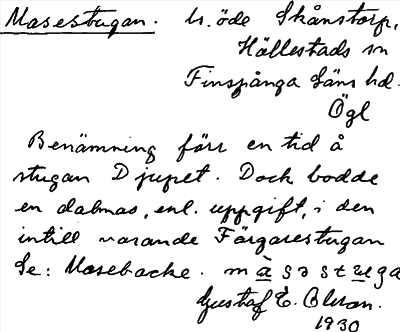 Masestugan. ls. öde Skånstorp,
Hällestads sn
Finspånga läns hd.
Ögl
Benämning förr en tid å
stugan Djupet. Dock bodde
en dalmas, enl. uppgift, i den
intill varande Färgarestugan
Se: Masebacke. màsəstuga
Gustaf E. Olsson.
1930